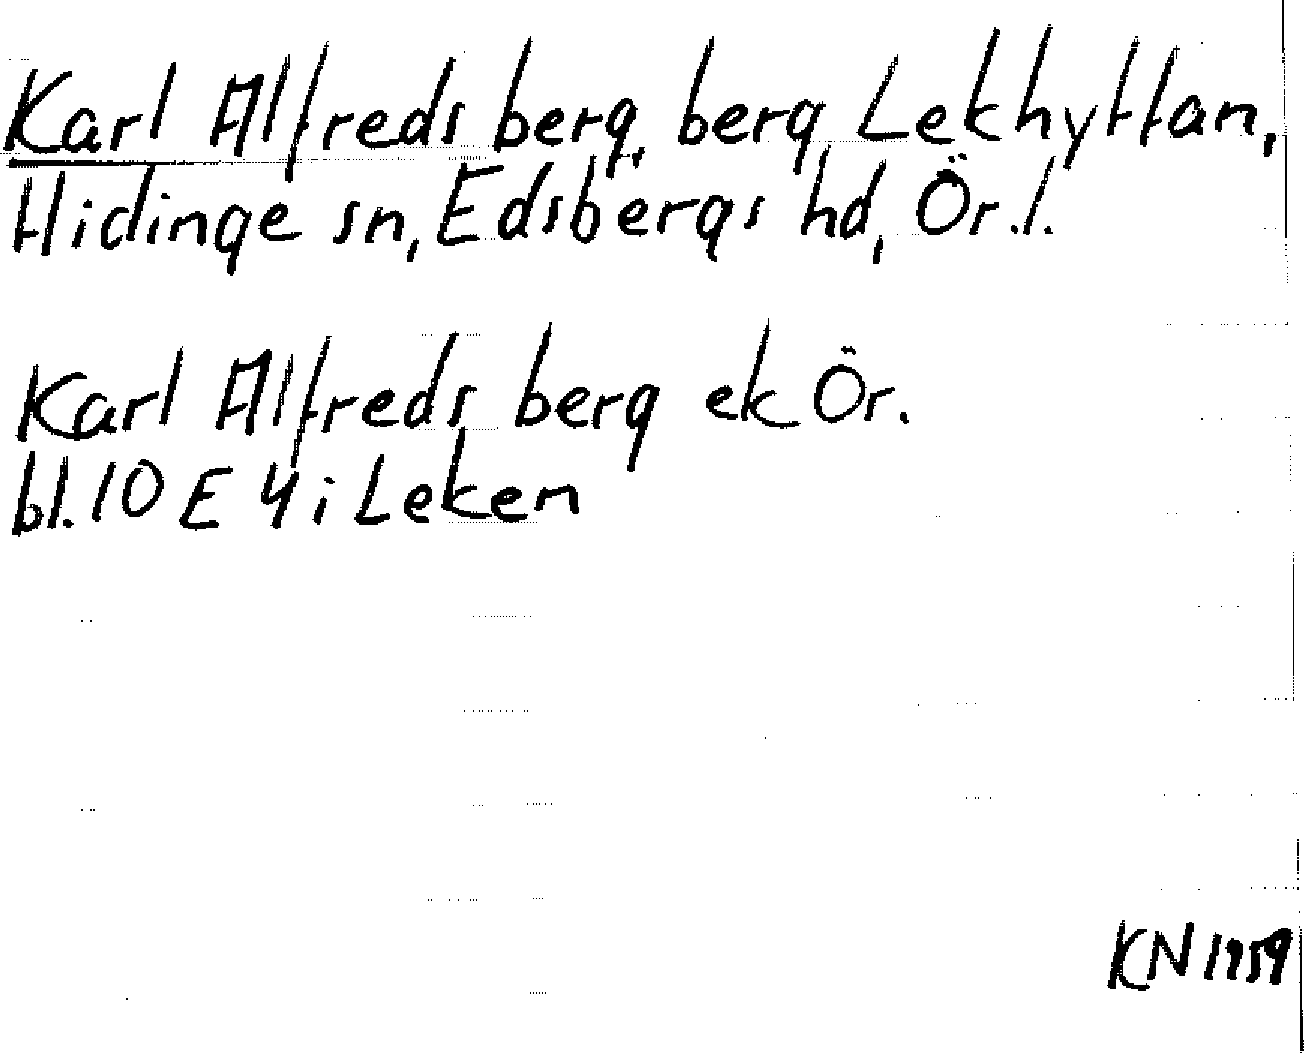 Karl Alfreds berg, berg, Lekhyttan,
Hidinge sn, Edsbergs hd, Ör.l.
Karl Alfreds berg ek Ör.
bl. 10 E 4 i Leken
KN 1959